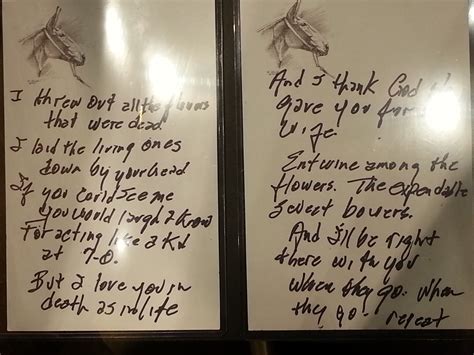 I threw out all the flowers
that were dead
I laid the living ones
down by your head
If you could see me
you would laugh I know
For acting like a kid
at 7-0.
But I love you in
death as in life
And I thank God
gave you for a
wife.
Entwine among the
flowers. The expendable
sweet bowers.
And I'll be right
there with you
When they go. When
they go. repeat